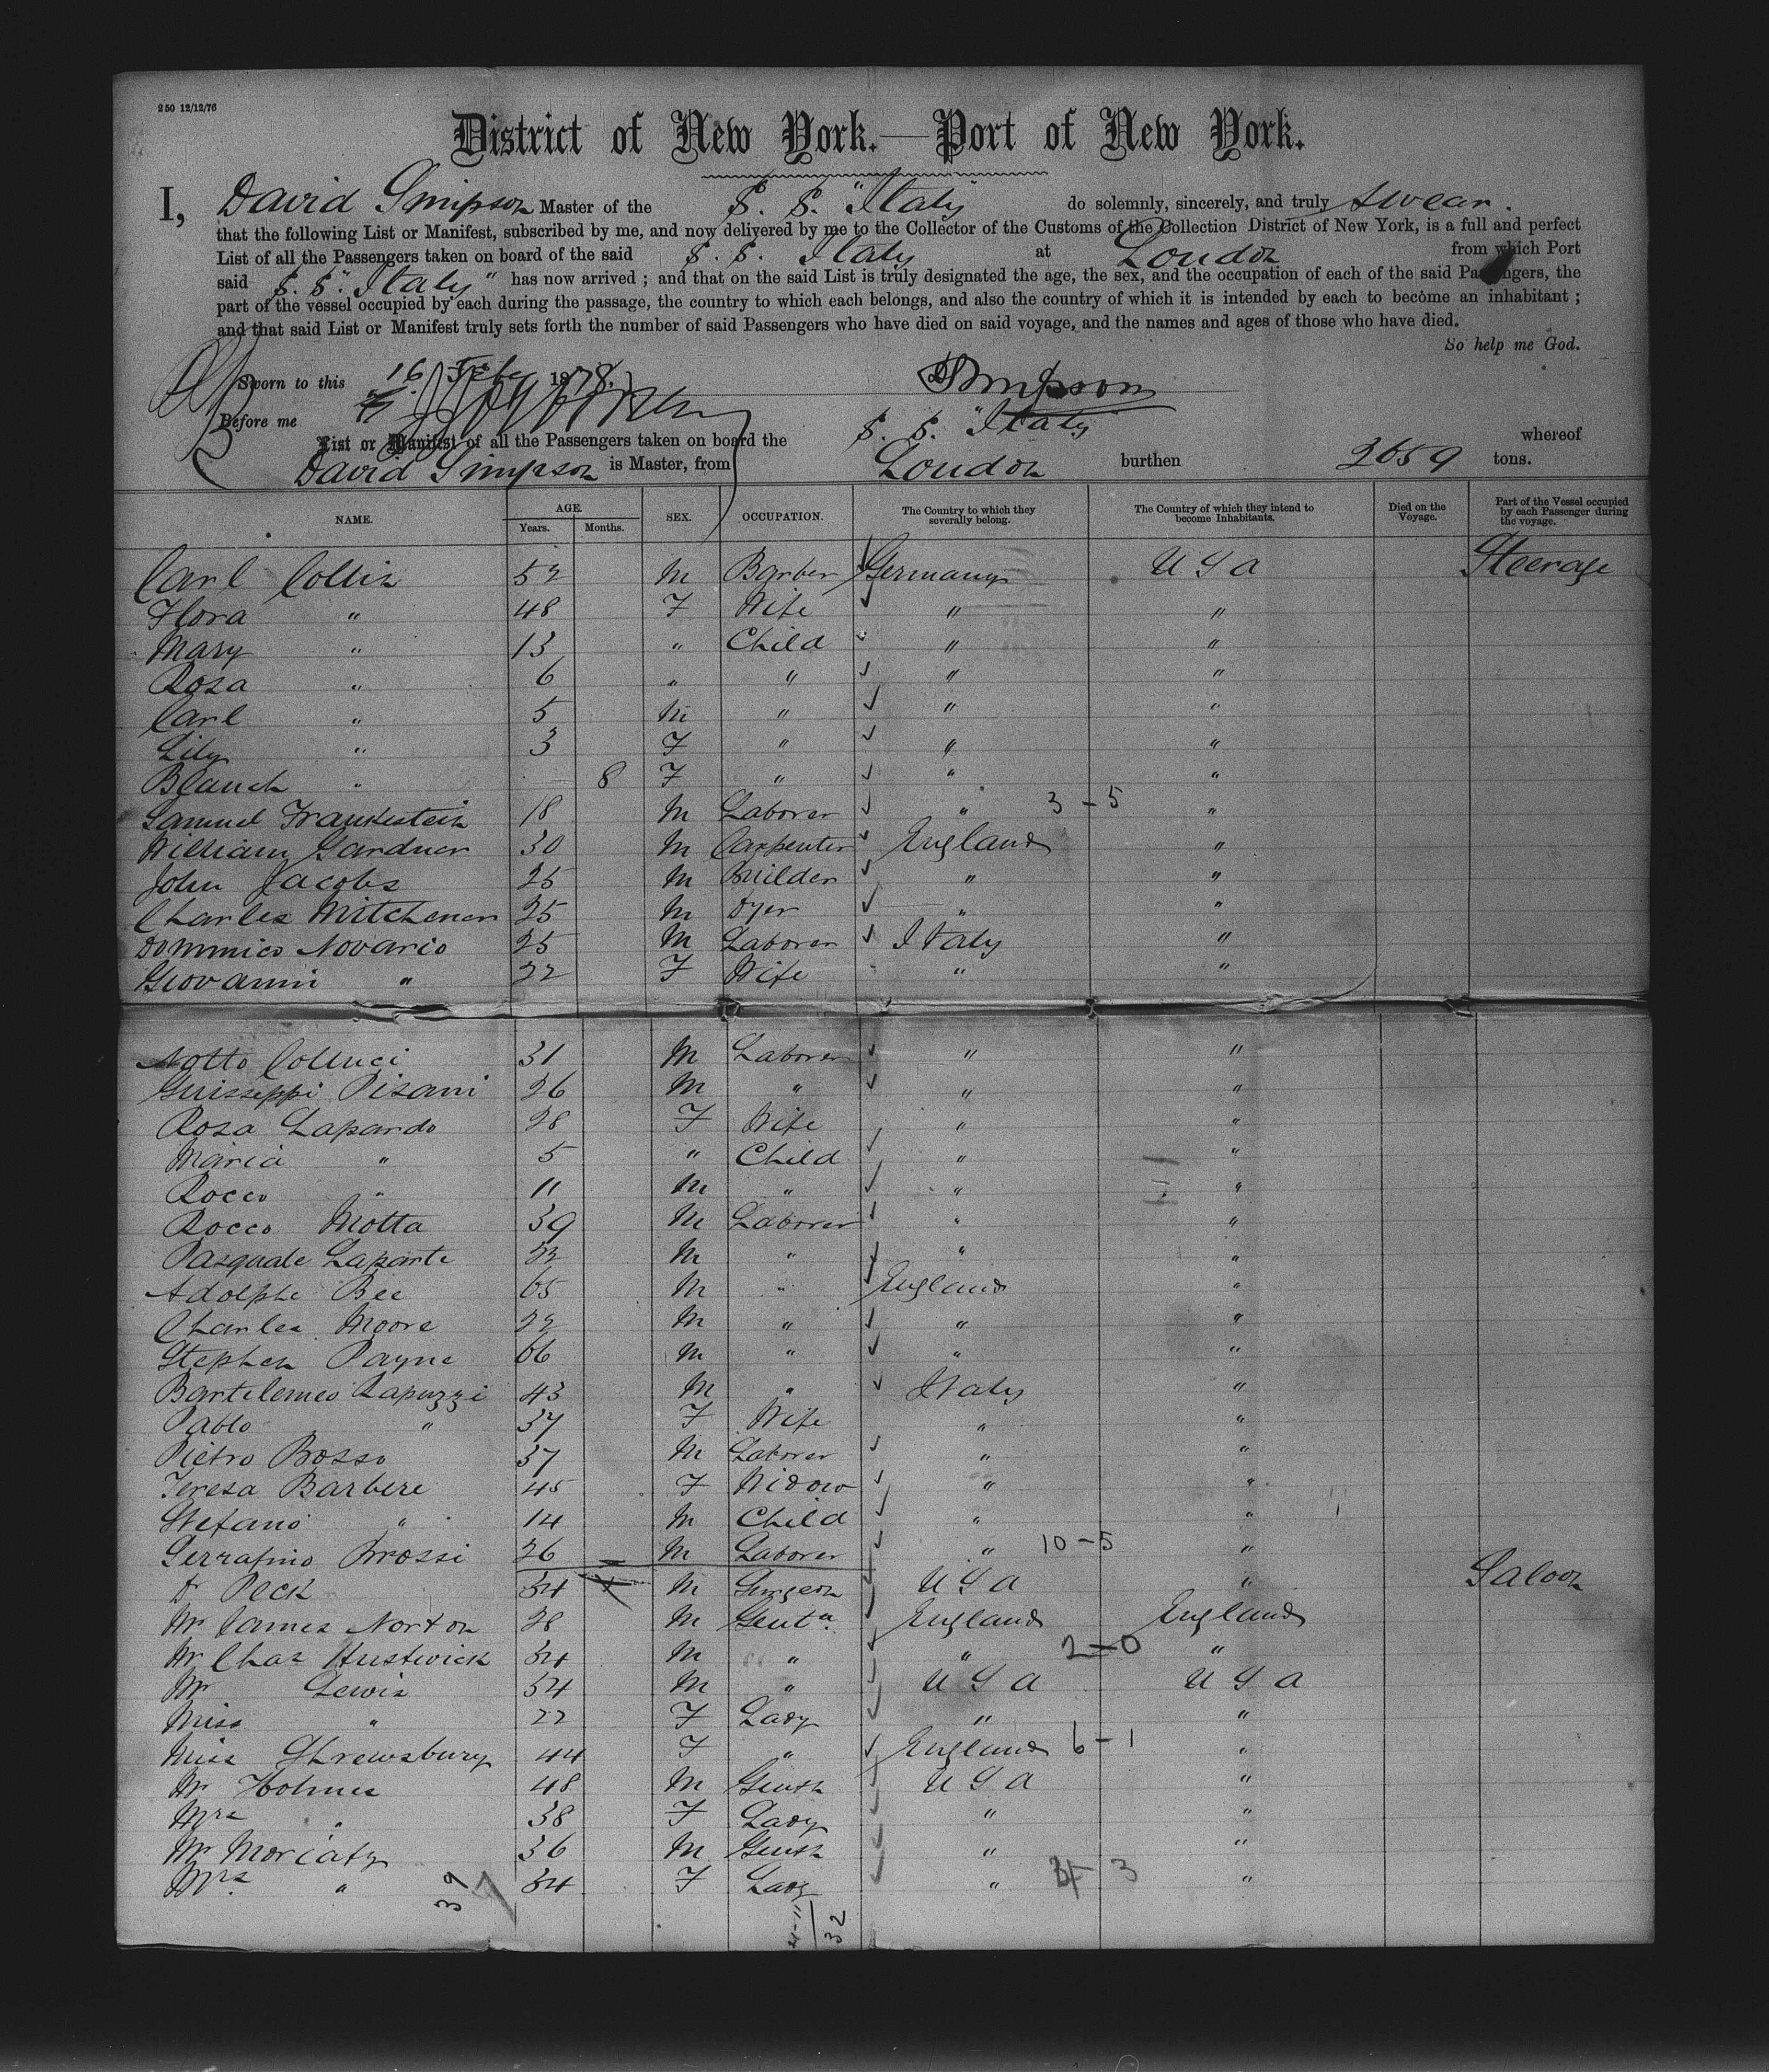 250 12/12/76
District of New York.—Port of New York.
I, David Simpson Master of the S. S. "Italy do solemnly, sincerely, and truly swear.
that the following List or Manifest, subscribed by me, and now delivered by me to the Collector of the Customs of the Collection District of New York, is a full and perfect
List of all the Passengers taken on board of the said S. S. Italy at London from which Port
said S. S. "Italy" has now arrived ; and that on the said List is truly designated the age, the sex, and the occupation of each of the said Passengers, the
part of the vessel occupied by each during the passage, the country to which each belongs, and also the country of which it is intended by each to become an inhabitant ;
and that said List or Manifest truly sets forth the number of said Passengers who have died on said voyage, and the names and ages of those who have died.
So help me God.
Sworn to this 16 Feby 1878. D Simpson
Before me
List or Manifest of all the Passengers taken on board the S. S. "Italy whereof
David Simpson is Master, from London burthen 2659 tons.
NAME. AGE. Years. Months. SEX. OCCUPATION. The Country to which they severally belong. The Country of which they intend to become Inhabitants. Died on the Voyage. Part of the Vessel occupied by each Passenger during the voyage.
Carl Collin 52 M Barber Germany U S A Steerage
Flora " 48 F Wife " "
Mary " 13 " Child " "
Rosa " 6 " " " "
Carl " 5 M " " "
Lily " 3 F " " "
Blanch " 8 F " " "
Samuel Frankestein 18 M Laborer " 3-5 "
William Gardner 30 M Carpenter England "
John Jacobs 25 M Builder " "
Charles Mitchener 25 M Dyer " "
Dominico Novario 25 M Laborer Italy "
Giovanni " 22 F Wife " "
Notto Colluci 31 M Laborer " "
Guisseppi Pisani 26 M " " "
Rosa Lapardo 28 F Wife " "
Maria " 5 " Child " "
Rocco " 11 M " " "
Rocco Motta 39 M Laborer " "
Pasquale Laparte M " " "
Adolphe Bee 65 M " England "
Charles Moore 22 M " " "
Stephen Payne 66 M " " "
Bartelemeo Rapuzzi 43 M " Italy "
Pablo " 37 F Wife " "
Pietro Bosso 37 M Laborer " "
Teresa Barbere 45 F Widow " "
Stefano " 14 M Child " "
Serrafino Brossi 26 M Laborer " 10-5 "
Dr Peck 34 M Surgeon U S A " Saloon
Mr James Norton 28 M Gentn. England England
Mr Chas Hustwick 34 M " " 2-0 "
Mr Lewis 54 M " U S A U S A
Miss " 22 F Lady " "
Miss Shrewsbury 44 F " England 6-1 "
Mr Holmes 48 M Gentn U S A "
Mrs " 38 F Lady " "
Mr Moriaty 36 M Gentn " "
Mrs " 34 F Lady " 3 "
39
32